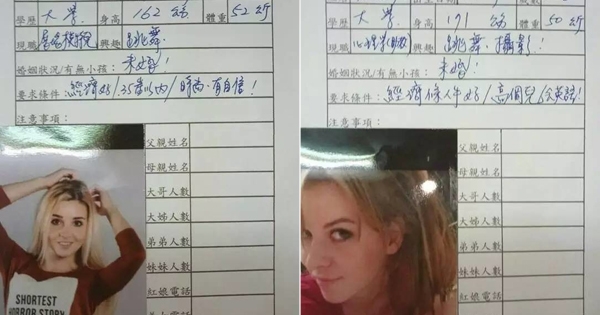 學歷 大學 身高 162公分 體重 52公斤
現職 興趣 跳舞
婚姻狀況/有無小孩: 未婚!
要求條件: 經濟好/35歲以內/時尚、有自信!
注意事項:
父親姓名
母親姓名
大哥人數
大姊人數
弟弟人數
妹妹人數
紅娘電話
SHORTEST
HORROR STORY
學歷 大學 身高 171公分 體重 50公斤
現職 興趣 跳舞、攝影!
婚姻狀況/有無小孩: 未婚!
要求條件: 經濟條件好/高個兒/會英語!
注意事項:
父親姓名
母親姓名
大哥人數
大姊人數
弟弟人數
妹妹人數
紅娘電話